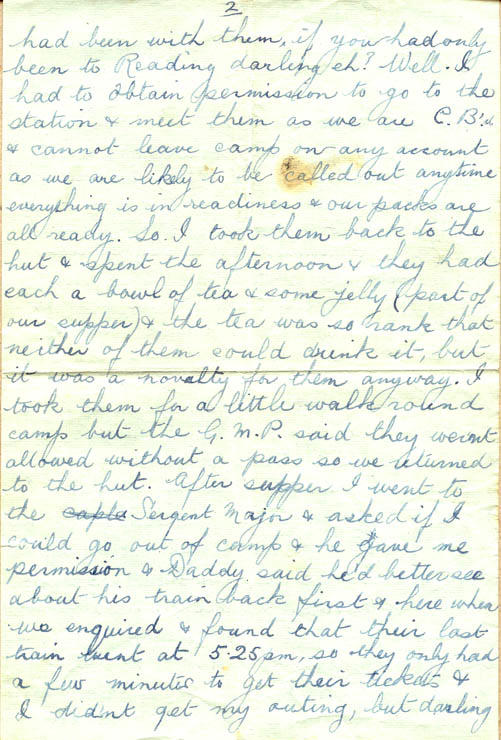 2
had been with them, if you had only
been to Reading darling eh? Well. I
had to obtain permission to go to the
station & meet them as we are C.B'd.
& cannot leave camp on any account
as we are likely to be called out anytime
everything is in readiness & our packs are
all ready. So. I took them back to the
hut & spent the afternoon & they had
each a bowl of tea & some jelly (part of
our supper) & the tea was so rank that
neither of them could drink it, but
it was a novalty for them anyway. I
took them for a little walk round
camp but the G.M.P. said they wernt
allowed without a pass so we returned
to the hut. After supper I went to
the Sergent Major & asked if I
could go out of camp & he gave me
permission & Daddy said he'd better see
about his train back first & here when
we enquired & found that their last
train went at 5.25pm, so they only had
a few minutes to get their tickets &
I did'nt get my outing, but darling